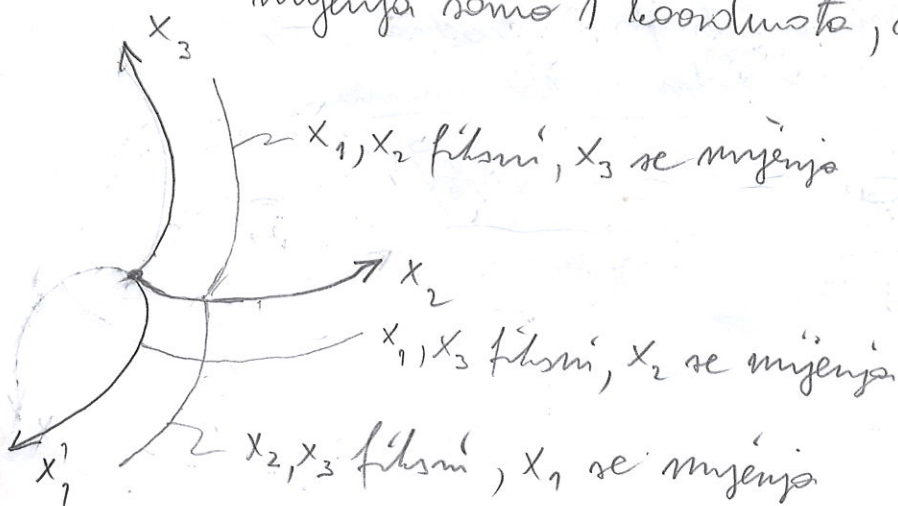 mijenja samo 1 koordinata,
x₃
x₁, x₂ fiksni, x₃ se mijenja
x₂
x₁, x₃ fiksni, x₂ se mijenja
x₂, x₃ fiksni, x₁ se mijenja
x₁